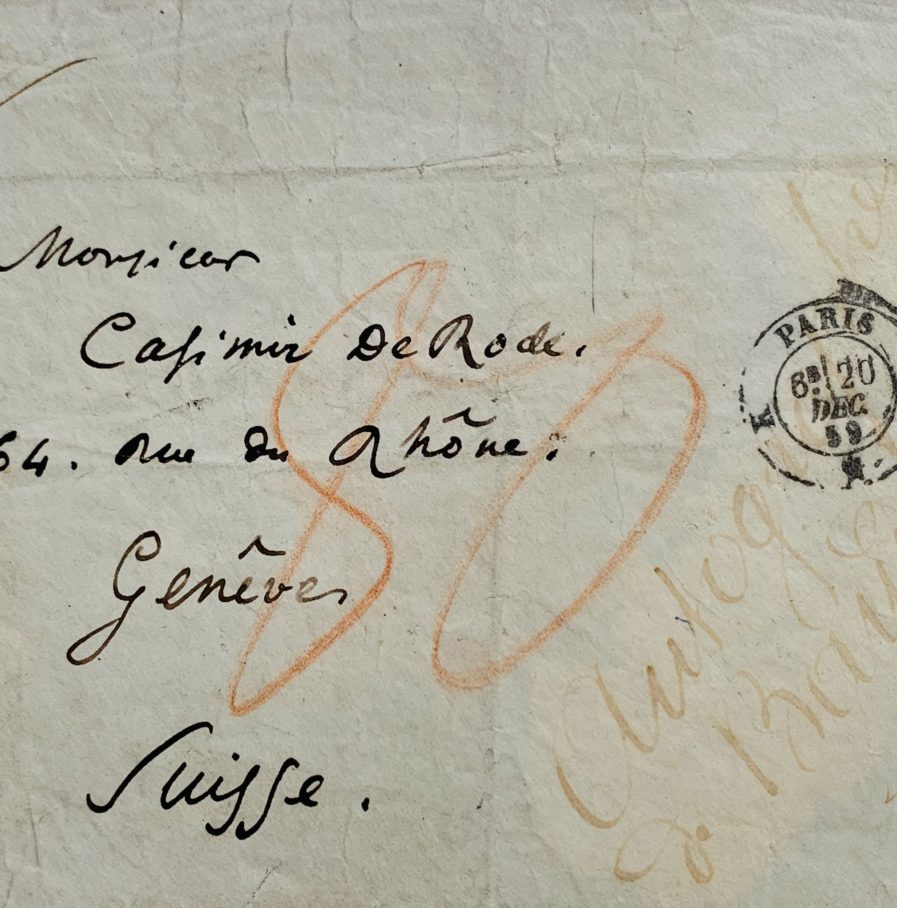 Monsieur
Casimir De Rode.
64. Rue du Rhône.
Genêve
Suisse.
80
PARIS
6E 20
DEC.
59
Autog